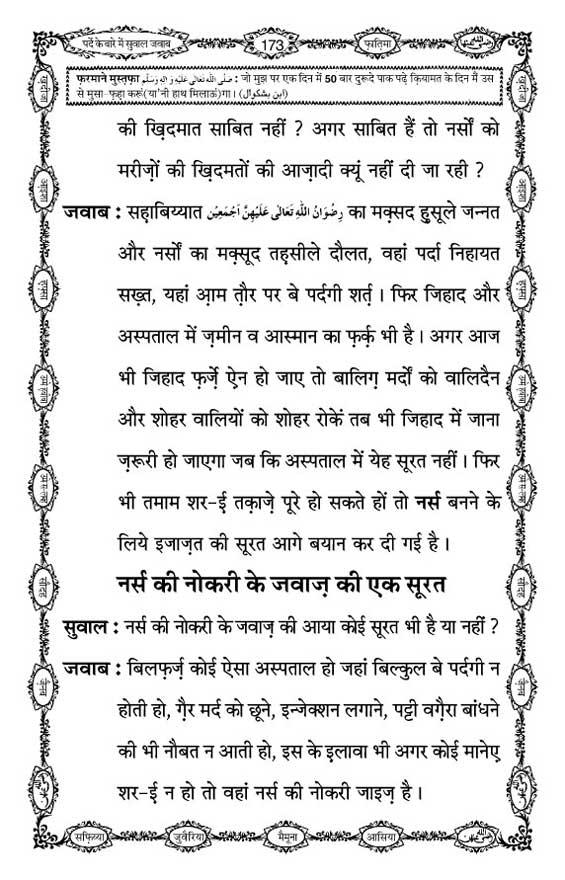 पर्दे के बारे में सुवाल जवाब
173
फ़ातिमा
फ़रमाने मुस्तफ़ा صلى الله تعالى عليه و اله وسلم : जो मुझ पर एक दिन में 50 बार दुरूदे पाक पढ़े क़ियामत के दिन मैं उस
से मुसा-फ़हा करूं(या'नी हाथ मिलाऊं)गा। (ابن بشكوال)
की ख़िदमात साबित नहीं ? अगर साबित हैं तो नर्सों को
मरीज़ों की ख़िदमतों की आज़ादी क्यूं नहीं दी जा रही ?
जवाब : सह़ाबिय्यात رِضْوَانُ اللهِ تَعَالٰى عَلَيْهِنَّ اَجْمَعِيْن का मक़्सद ह़ुसूले जन्नत
और नर्सों का मक़्सूद तह़सीले दौलत, वहां पर्दा निहायत
सख़्त, यहां आ़म त़ौर पर बे पर्दगी शर्त़ । फिर जिहाद और
अस्पताल में ज़मीन व आस्मान का फ़र्क़ भी है । अगर आज
भी जिहाद फ़र्ज़े ऐ़न हो जाए तो बालिग़ मर्दों को वालिदैन
और शोहर वालियों को शोहर रोकें तब भी जिहाद में जाना
ज़रूरी हो जाएगा जब कि अस्पताल में येह सूरत नहीं । फिर
भी तमाम शर-ई़ तक़ाज़े पूरे हो सकते हों तो नर्स बनने के
लिये इजाज़त की सूरत आगे बयान कर दी गई है ।
नर्स की नोकरी के जवाज़ की एक सूरत
सुवाल : नर्स की नोकरी के जवाज़ की आया कोई सूरत भी है या नहीं ?
जवाब : बिलफ़र्ज़ कोई ऐसा अस्पताल हो जहां बिल्कुल बे पर्दगी न
होती हो, ग़ैर मर्द को छूने, इन्जेक्शन लगाने, पट्टी वग़ैरा बांधने
की भी नौबत न आती हो, इस के इ़लावा भी अगर कोई मानेए
शर-ई़ न हो तो वहां नर्स की नोकरी जाइज़ है ।
सफ़िय्या
जुवैरिया
मैमूना
आसिया